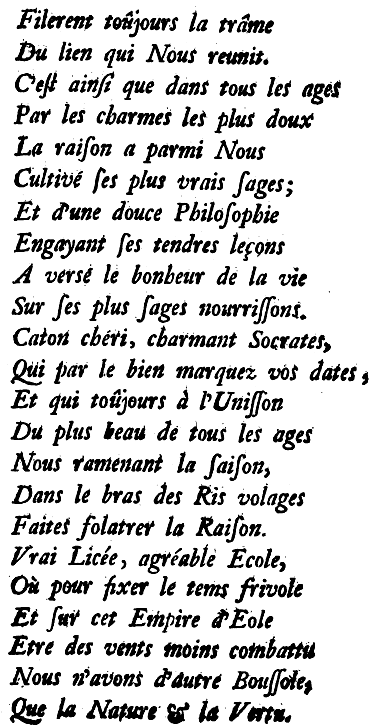 Filerent toûjours la trâme
Du lien qui Nous reunit.
C'eſt ainſi que dans tous les ages
Par les charmes les plus doux
La raiſon a parmi Nous
Cultivé ſes plus vrais ſages;
Et d'une douce Philoſophie
Engayant ſes tendres leçons
A versé le bonheur de la vie
Sur ſes plus ſages nourriſſons.
Caton chéri, charmant Socrates,
Qui par le bien marquez vos dates,
Et qui toûjours à l'Uniſſon
Du plus beau de tous les ages
Nous ramenant la ſaiſon,
Dans le bras des Ris volages
Faites folatrer la Raiſon.
Vrai Licée, agréable Ecole,
Où pour fixer le tems frivole
Et ſur cet Empire d'Eole
Etre des vents moins combattu
Nous n'avons d'autre Bouſſole,
Que la Nature & la Vertu.